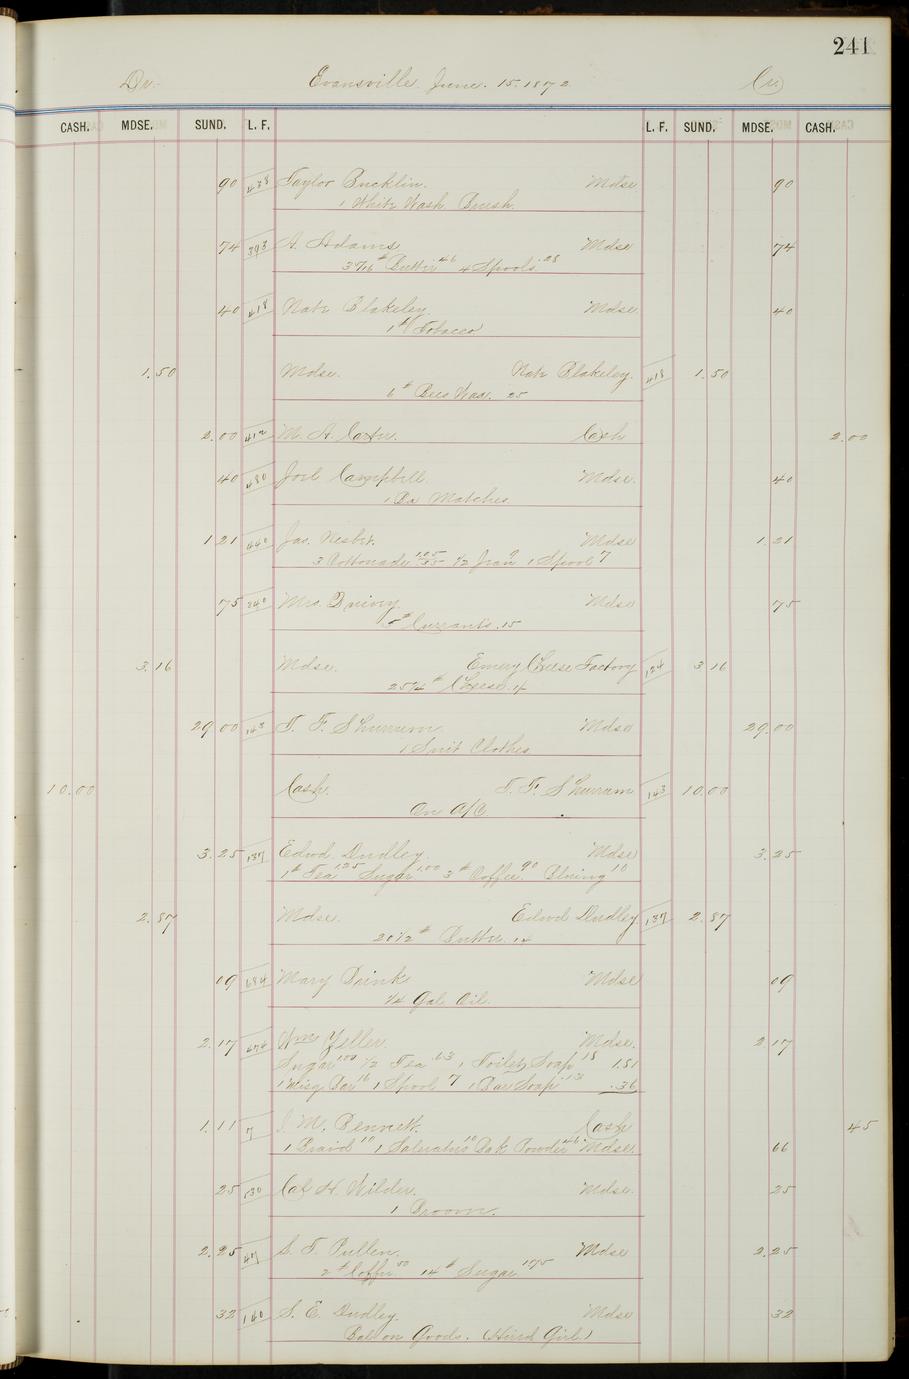 241
Dr. Evansville June. 15. 1872 Cr.
CASH. MDSE. SUND. L. F. L. F. SUND. MDSE. CASH.
90 438 Taylor Bucklin. Mdse 90
1 White Wash Brush.
74 393 A. Adams Mdse 74
Butter 46 4 Spools 28
40 418 Nate Blakeley. Mdse. 40
1 # Tobacco
1.50 Mdse. Nate Blakeley. 418 1.50
6 # Bees Wax. 25
2.00 M. A. Carter. Cash 2.00
40 480 Joel Campbell. Mdse. 40
1 Dz Matches
1 21 440 Jas. Nesbit. Mdse 1.21
3 Cottonade 1.05 35 1/2 Jean 9 1 Spool 7
75 Mrs. Mdse 75
5 # Currants .15
3.16 Mdse. Emery Cheese Factory 124 3 16
Cheese
29 00 143 T. F. Shurrum Mdse 29.00
1 Suit Clothes
10.00 Cash. T. F. Shurrum 143 10.00
On A/C
3.25 137 Edwd Dudley. Mdse 3.25
1 # Tea 1.25 Sugar 1.00 3 # Coffee 90 Bluing 10
2.87 Mdse. Edwd Dudley. 137 2.87
20 1/2 # Butter. 14
09 684 Mary Brink Mdse 09
1/4 Gal Oil.
2.17 674 Wm Zeller. Mdse. 2 17
Sugar 1.00 1/2 Tea .63 1 Toilet Soap 18 1.81
1 Spool 7 1 Bar Soap .13 .36
1.11 7 Bennett. Cash 45
1 Braid 10 1 Saleratus 10 Bak Powder 46 Mdse. 66
25 Cal H. Wilder. Mdse. 25
1 Broom.
2.25 47 S. F. Pullen. Mdse 2.25
2 # Coffee 50 14 # Sugar 1.75
32 160 S. E. Dudley. Mdse 32
Bal on Goods. (Hired Girl)